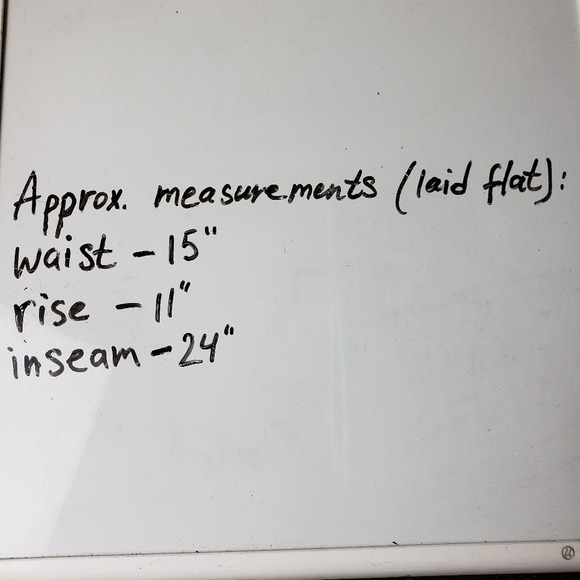 Approx. measurements (laid flat):
waist - 15"
rise - 11"
inseam - 24"